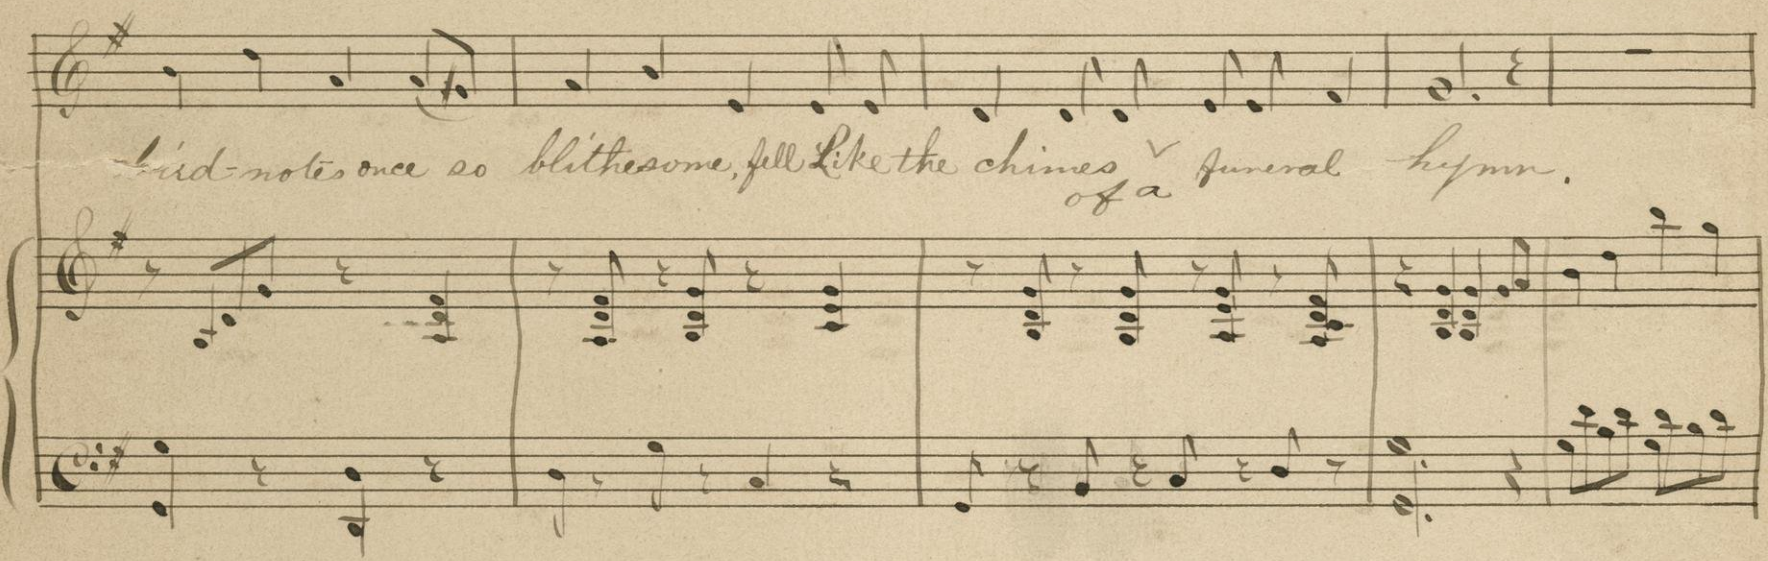 bird-notes once so blithesome, fell Like the chimes ˅ funeral hymn.
of a